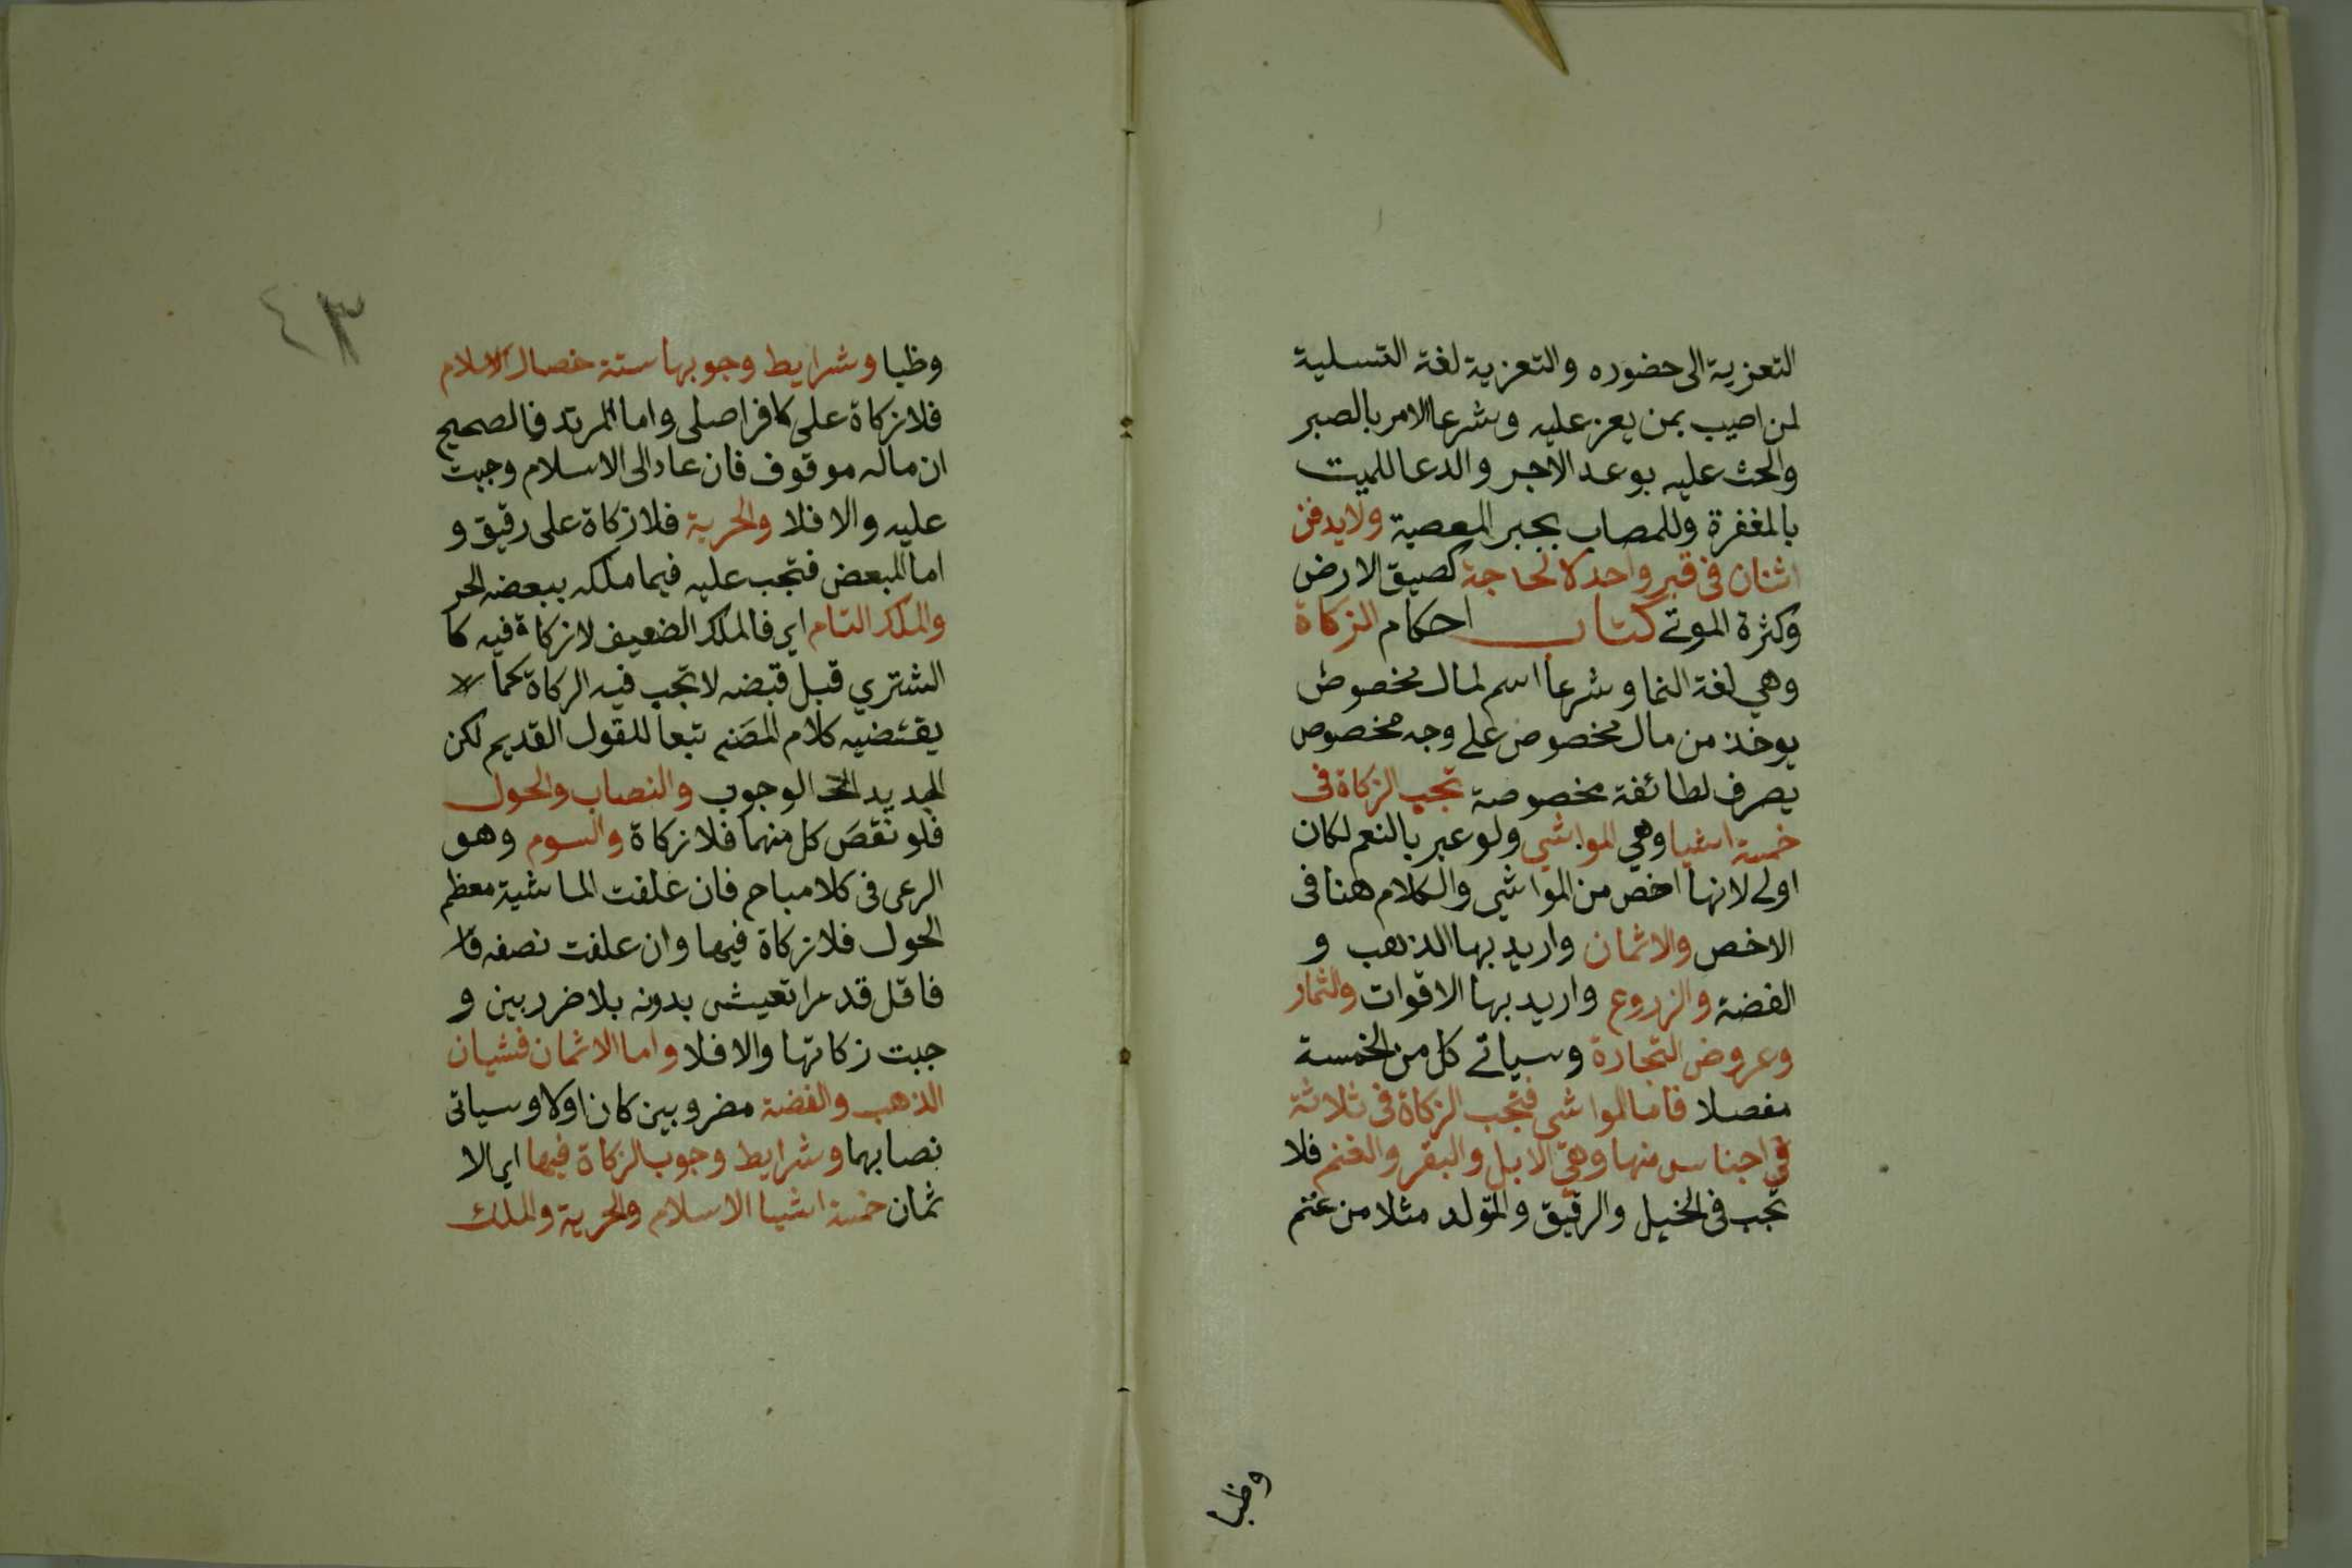 التعزية الى حضوره والتعزية لغة التسلية
لمن اصيب بمن يعز عليه وشرعا الامر بالصبر
والحث عليه بوعد الاجر والدعا للميت
بالمغفرة وللمصاب بجبر المعصية ولا يدفن
اثنان فى قبر واحد الا لحاجة كضيق الارض
وكثرة الموتى كتاب احكام الزكاة
وهي لغة النما وشرعا اسم لمال مخصوص
يوخذ من مال مخصوص على وجه مخصوص
يصرف لطائفة مخصوصة تجب الزكاة فى
خمسة اشيا وهي المواشي ولو عبر بالنعم لكان
اولى لانها اخص من المواشي والكلام هنا فى
الاخص والاثمان واريد بها الذهب و
الفضة والزروع واريد بها الاقوات والثمار
وعروض التجارة وسياتى كل من الخمسة
مفصلا فاما المواشى فتجب الزكاة فى ثلاثة
في اجناس منها وهي الابل والبقر والغنم فلا
تجب فى الخيل والرقيق والمتولد مثلا من غنم
وظبا
٤٣
وظبا وشرايط وجوبها ستة خصال الاسلام
فلا زكاة على كافر اصلى واما المرتد فالصحيح
ان ماله موقوف فان عاد الى الاسلام وجبت
عليه والا فلا والحرية فلا زكاة على رقيق و
اما المبعض فتجب عليه فيما ملكه ببعضه الحر
والملك التام اي فالملك الضعيف لا زكاة فيه كا
لمشتري قبل قبضه لا تجب فيه الزكاة كما
يقتضيه كلام المصنم تبعا للقول القديم لكن
الجديد الوجوب والنصاب والحول
فلو نقص كل منهما فلا زكاة والسوم وهو
الرعى فى كلا مباح فان علفت الماشية معظم
الحول فلا زكاة فيها وان علفت نصفه فا
فاقل قدرا تعيش بدونه بلا ضرر بين و
جبت زكاتها والا فلا واما الاثمان فشيان
الذهب والفضة مضروبين كان اولا وسياتى
نصابهما وشرايط وجوب الزكاة فيها اي الا
ثمان خمسة اشيا الاسلام والحرية والملك